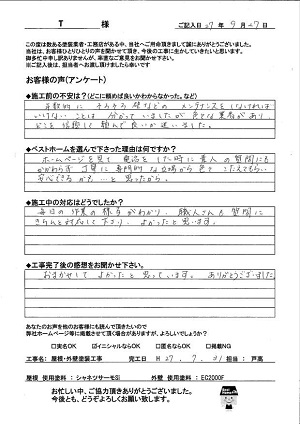 T 様 ご記入日 27年 9月 27日
この度は数ある塗装業者・工務店がある中、当社へご用命頂きまして誠にありがとうございました。
当社は、お客様ひとりひとりの声をお聞かせ頂き、今後の工事に生かしていきたいと思います。
御多忙中申し訳ありませんが、率直なご意見をお聞かせ下さい。
※ご記入後は、担当者へお渡し頂けましたら幸いです
お客様の声(アンケート)
◆施工前の不安は?(どこに頼めば良いかわからなかった。など)
年数的に そろそろ 壁などの メンテナンスをしなければ
いけない ことは 分かっていましたが 色々な業者があり
どこを信頼して 頼んで良いか迷いました。
◆ベストホームを選んで下さった理由は何ですか?
ホームページを見て 電話を した時に 素人の 質問にも
かかわらず 丁寧に 専門的な立場から 色々 こたえてもらい
安心できるかも…と思ったから。
◆施工中の対応はどうでしたか?
毎日の 作業の 様子がわかり、職人さんも 質問に
きちんと対応して下さり、よかったと思います。
◆工事完了後の感想をお聞かせ下さい。
おまかせして よかったと 思っています。 ありがとうございました
あなたのお声を他のお客様にも読んで頂きたいので
弊社ホームページ等に掲載させて頂く場合がありますが、よろしいでしょうか?
□実名OK ☑イニシャルならOK □匿名ならOK □掲載NG
工事名: 屋根・外壁塗装工事 完工日 H 27. 7. 31 担当: 戸高
屋根 使用塗料: シャネツサーモSi 外壁 使用塗料: EC2000F
お忙しい中、ご協力頂きありがとうございました。
今後とも、どうぞよろしくお願い致します。